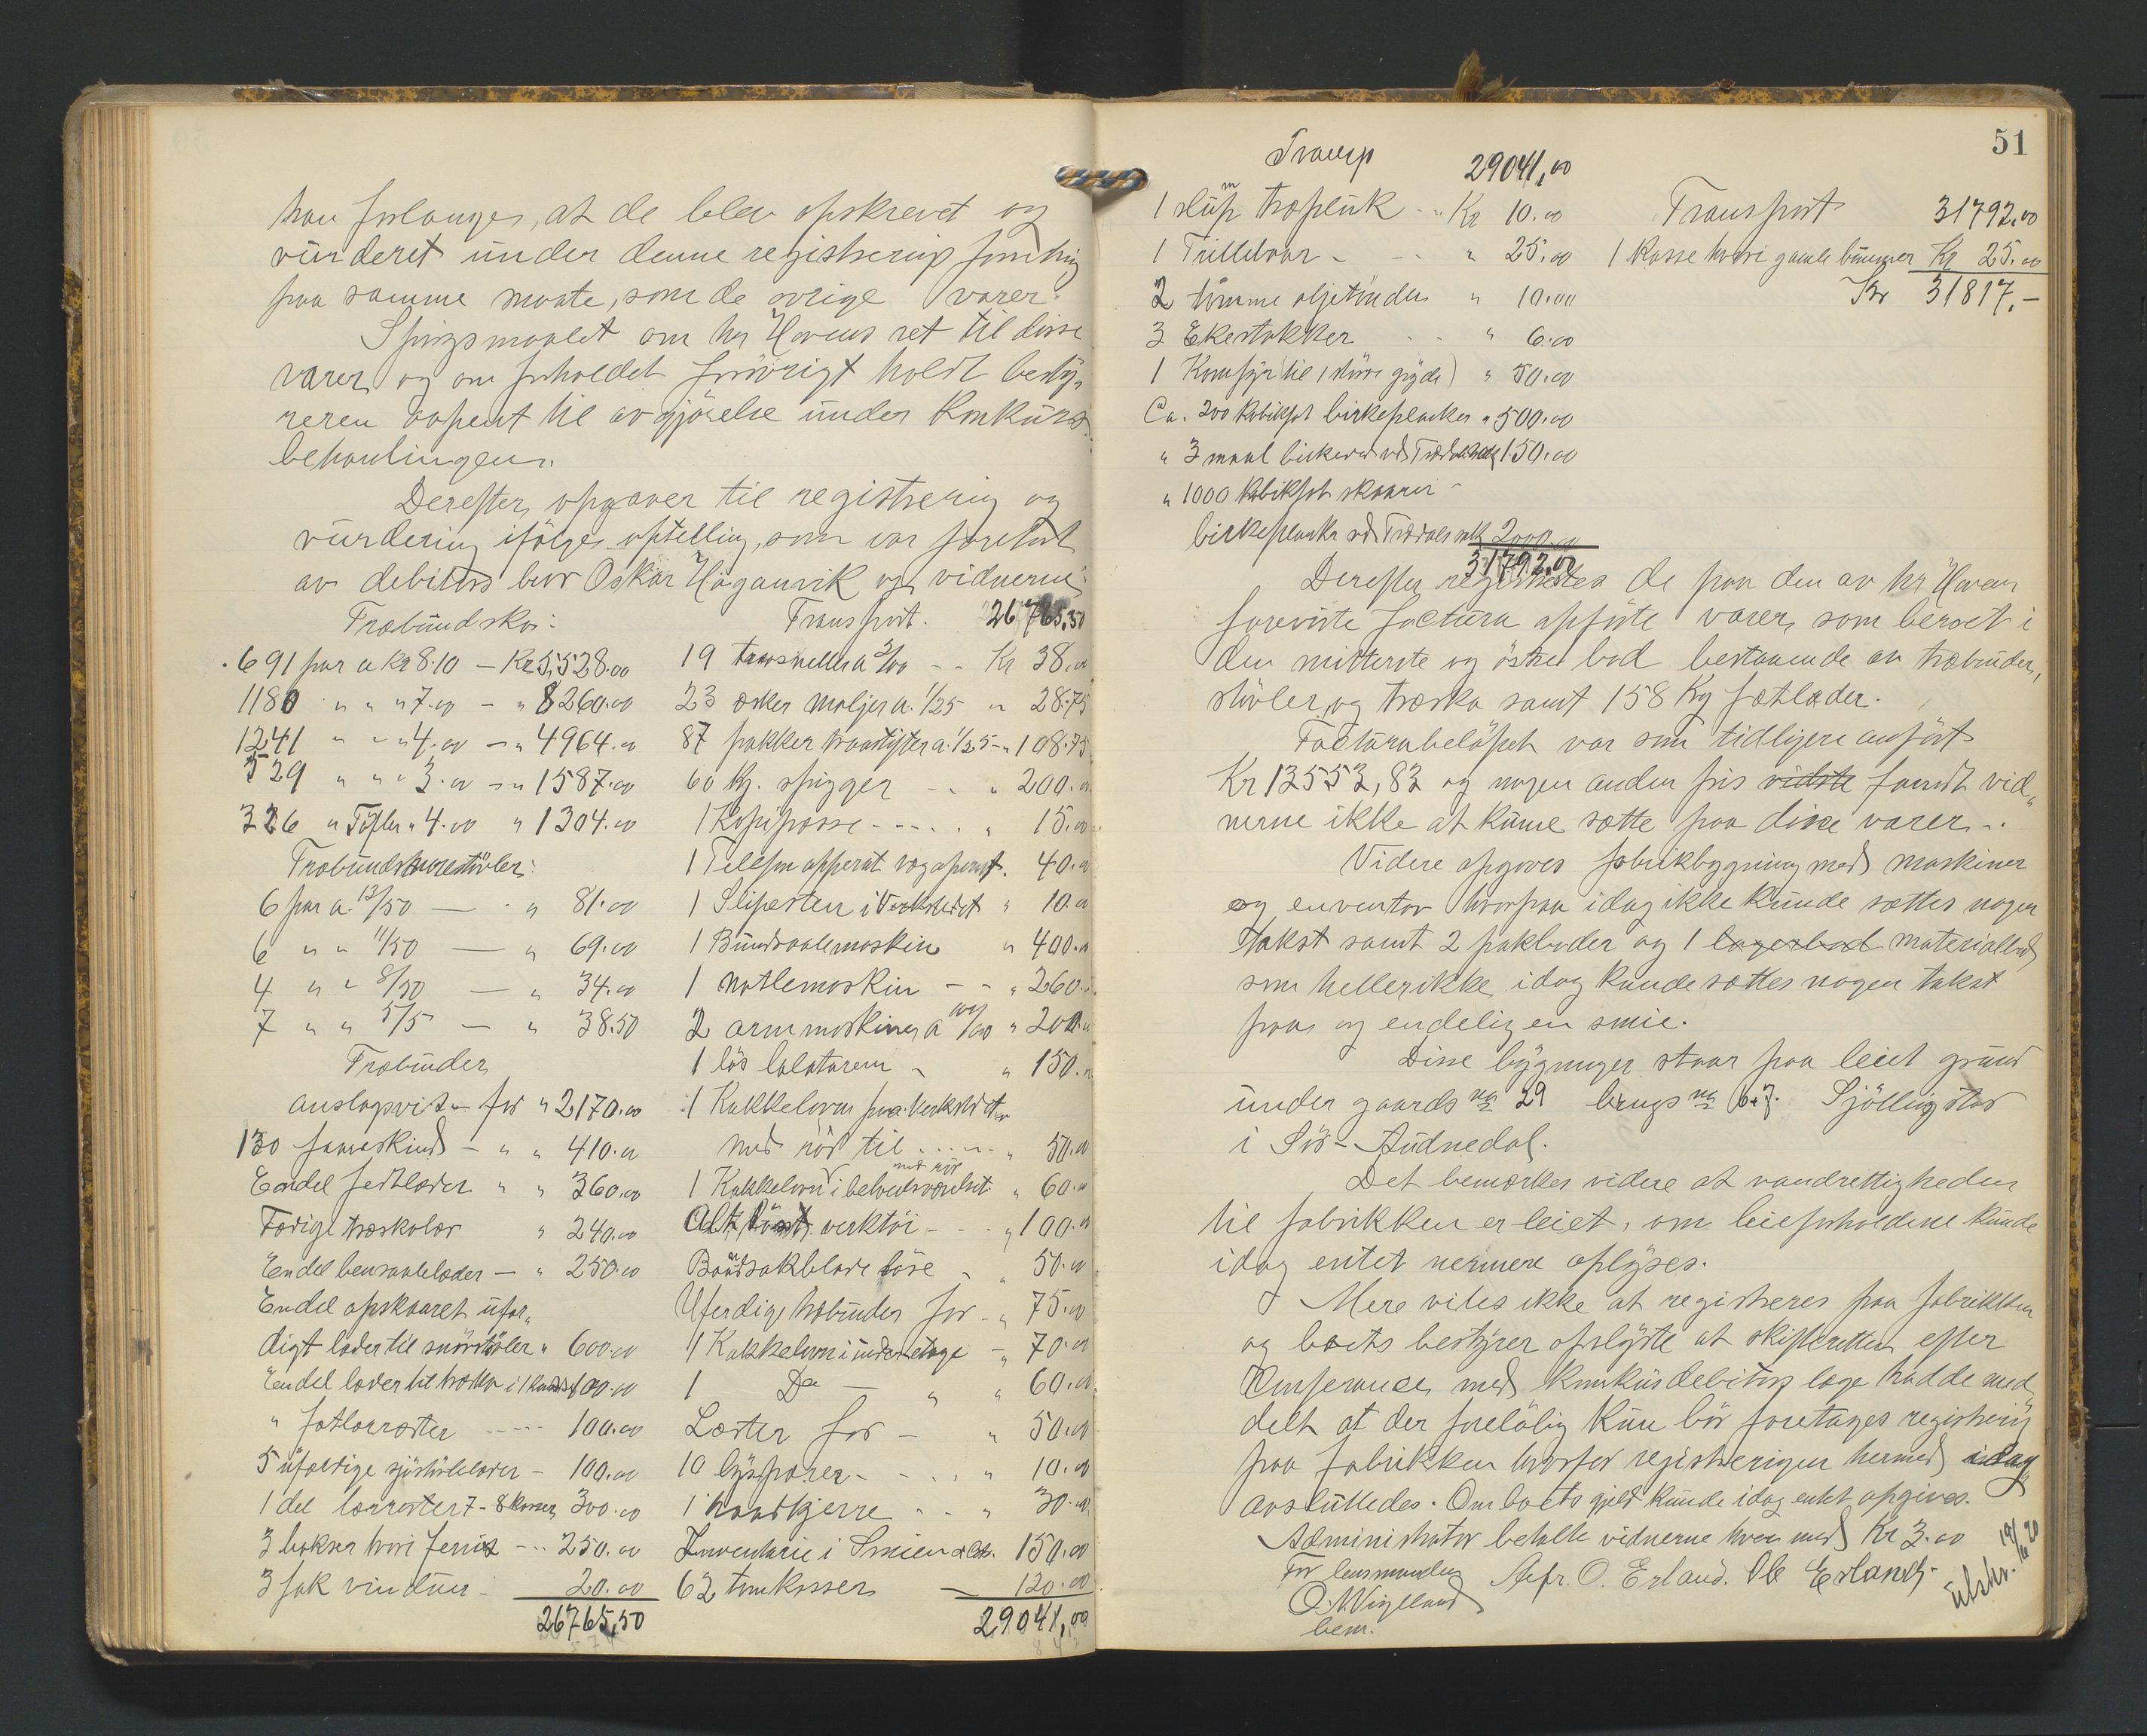 han forlanges, at de blev opskrevet og
vurderet under denne registrering
paa samme maate, som de øvrige varer.
Spørgsmaalet om hr Havens ret til disse
varer og om forholdet forøvrigt holdt besty,
reren aapent til avgjørelse under Konkurs
behandlingen.
Derefter opgaves til registrering og
vurdering ifølge optelling, som var foretat
av debitors bror Oskar Høyanvik og vidnerne:
Træbundsko:
691 par a Kr 8.10 — Kr 5,528.00
1180 " " " 7.00 — " 8260.00
1241 " " " 4.00 — " 4964.00
529 " " " 3.00 — " 1587.00
326 " Töfler " 4.00 " 1304.00
Træbundsnørestövler:
6 par a 13/50 — " 81.00
6 " " 11/50 — " 69.00
4 " " 8/50 — " 34.00
7 " " 5/5 — " 38.50
Træbunder
anslagsvis for " 2170.00
130 faareskind — " " 410.00
Endel fedtlæder " " 360.00
Færige træskolær " 240.00
Endel bensaalelæder — " 250.00
Endel opskaaret ufær,
digt læder til snörstövler " 600.00
Endel læder til træsko i 1 kasse 100.00
" fatlærrester ---- 100.00
5 ufærdige sjöstövlelæder — 100.00
1 del lærrester 7-8 kasser 300.00
3 bokser hvori fernis — 250.00
3 sak vinduer — 20.00
26765,50
Transport. 26765,50
19 a 2/00 — Kr 38.00
23 æsker maljer a 1/25 " 28.75
87 pakker traadstifter a 1/25 — " 108.75
60 Kg. spigger — " 200.00
1 Kopipresse ---- " 15.00
1 Telefon apperat 40.00
1 Slipesten i Verkstedet " 10.00
1 Bundsaalemaskin " 400.00
1 natlemaskin — " 260.00
2 arm maskiner a 100/00 " 200.00
1 lös " 150.00
1 Kakkelovn paa Verkstedet
med rör til ---- " 50.00
med rör
1 Kakkelovn i " 60.00
Alt löst verktöi — " 100.00
Baandsakblade löse — " 50.00
Uferdige træbunder for — " 75.00
1 Kakkelovn i underetage — " 70.00
1 Do — " " 60.00
Læster for — " 50.00
10 lyspærer — " 10.00
1 haandkjerre " 30.00
Inventarie i Smien 150.00
62 tomkasser — 120.00
29041,00
51
Transp 29041,00
1 træpluk — " Kr 10.00
1 Trillebaar — " 25.00
2 tomme oljetönder " 10.00
3 Ekestokker " 6.00
1 Komfyr til 1 större gryde) " 50.00
Ca. 200 Kubikfot birkeplanker " 500.00
" 3 maal birkeved ved 150.00
" 1000 Kubikfot skaaren
birkeplanker ved 2000.00
31792.00
Transport 31792.00
1 Kasse hvori gamle bunner Kr 25.00
Kr 31817.—
Derefter registrertes de paa den av hr Haven
foreviste factura opförte varer, som beroet i
den mitterste og östre bod bestaaende av træbunder,
stövler, og træsko samt 158 Kg fætlæder.
Facturabelöpet var som tidligere anfört
Kr 13553,83 og nogen anden pris vidste fandt vid,
nerne ikke at kunne sætte paa disse varer.
Videre opgaves fabrikbygning med maskiner
og enventar hvorpaa idag ikke kunde sættes nogen
takst samt 2 pakboder og 1 lagerbod materialbod
som heller ikke idag kunde sættes nogen takst
paa og endelig en smie.
Disse bygninger staar paa leiet grund
under gaards no 29 brugs no 6 7. Sjöllingstad
i Sör-Audnedal.
Det bemerkes videre at vandrettigheden
til fabrikken er leiet, om leieforholdene kunde
idag entet nermere oplyses.
Mere vites ikke at registreres paa fabrikken
og boets bestyrer oplyste at skifteretten efter
Conferance med konkursdebitors læge hadde med,
delt at der foreløbig kun bör foretages registrering
paa fabrikken hvorfor registreringen hermed idag
avsluttedes. Om boets gjeld kunde idag entet opgives.
Administrator betalte vidnerne hver med Kr 3.00
For lensmanden Asfr. O. Erland. Ole Erland.
O. N. Vigeland
bem.
utskr. 19/6 20